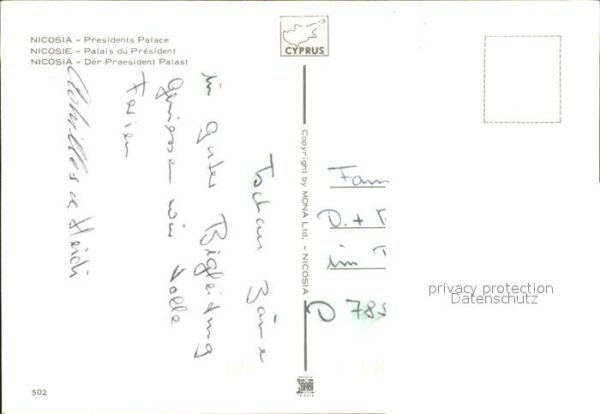 NICOSIA – Presidents Palace
NICOSIE – Palais du Président
NICOSIA – Der Praesident Palast
CYPRUS
Copyright by MONA Ltd. - NICOSIA
in guter Bigleitung
genissen wir tolle
Ferien
Heidi
Fam
D. +
im
D 785
privacy protection
Datenschutz
502